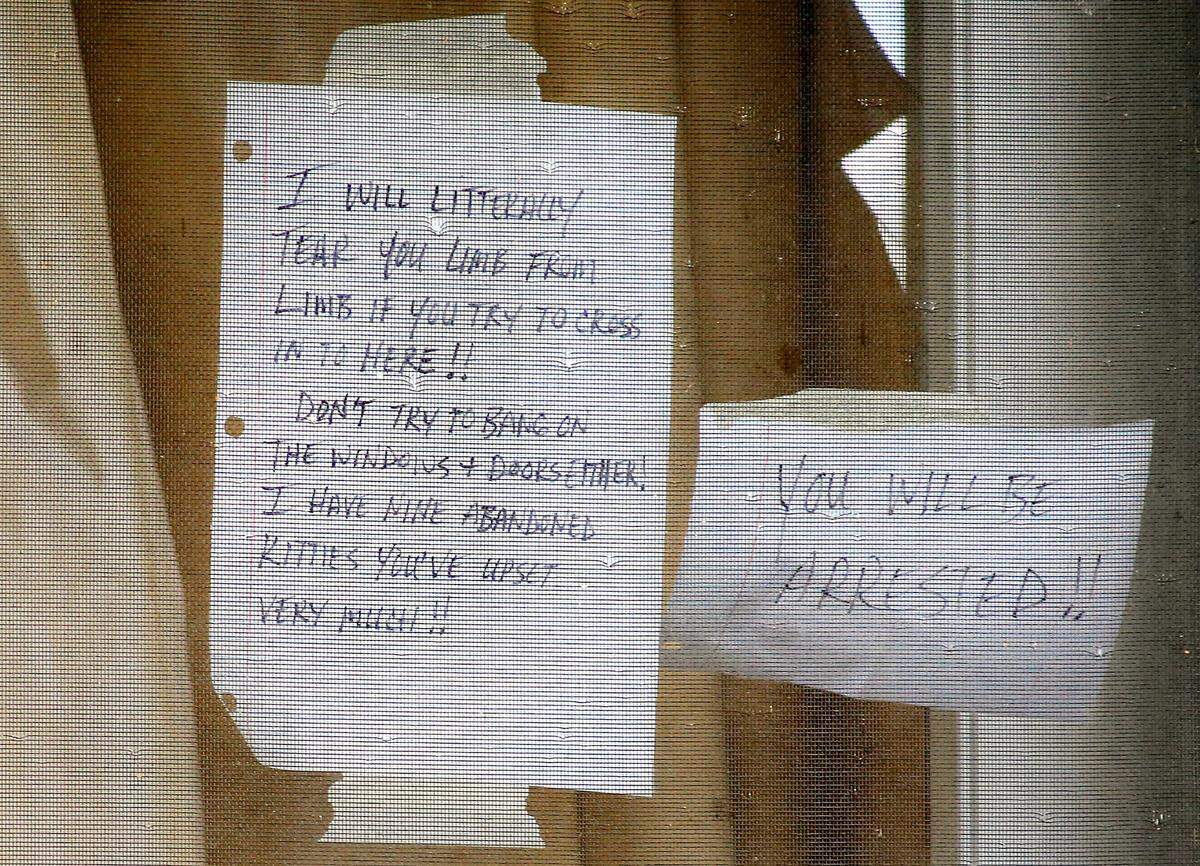 I WILL LITTERALLY
TEAR YOU LIMB FROM
LIMB IF YOU TRY TO CROSS
IN TO HERE!!
DON'T TRY TO BANG ON
THE WINDOWS + DOORS EITHER!
I HAVE NINE ABANDONED
KITTIES YOU'VE UPSET
VERY MUCH!!
YOU WILL BE
ARRESTED!!